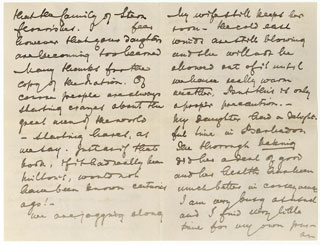 that the family of Stern
flourishes. I fear
however that your daughters
are becoming too learned
Many thanks for the
copy of the
course people are always
starting cranes about the
great men of the world
- starting hares, as
we say. Just as if that
book, if it had really been
Milton's, would not
have been known centuries
ago!-
We are jogging along
My wife still keeps her
room - the cold east
winds are still blowing
and she will not be
allowed out of it until
we have really warm
weather. But this is only
a proper precaution. -
My daughter had a delight-
ful time in
The thorough baking
did her a deal of good
and her health has been
much better in consequence
I am very busy as usual
and I find very little
time for my own